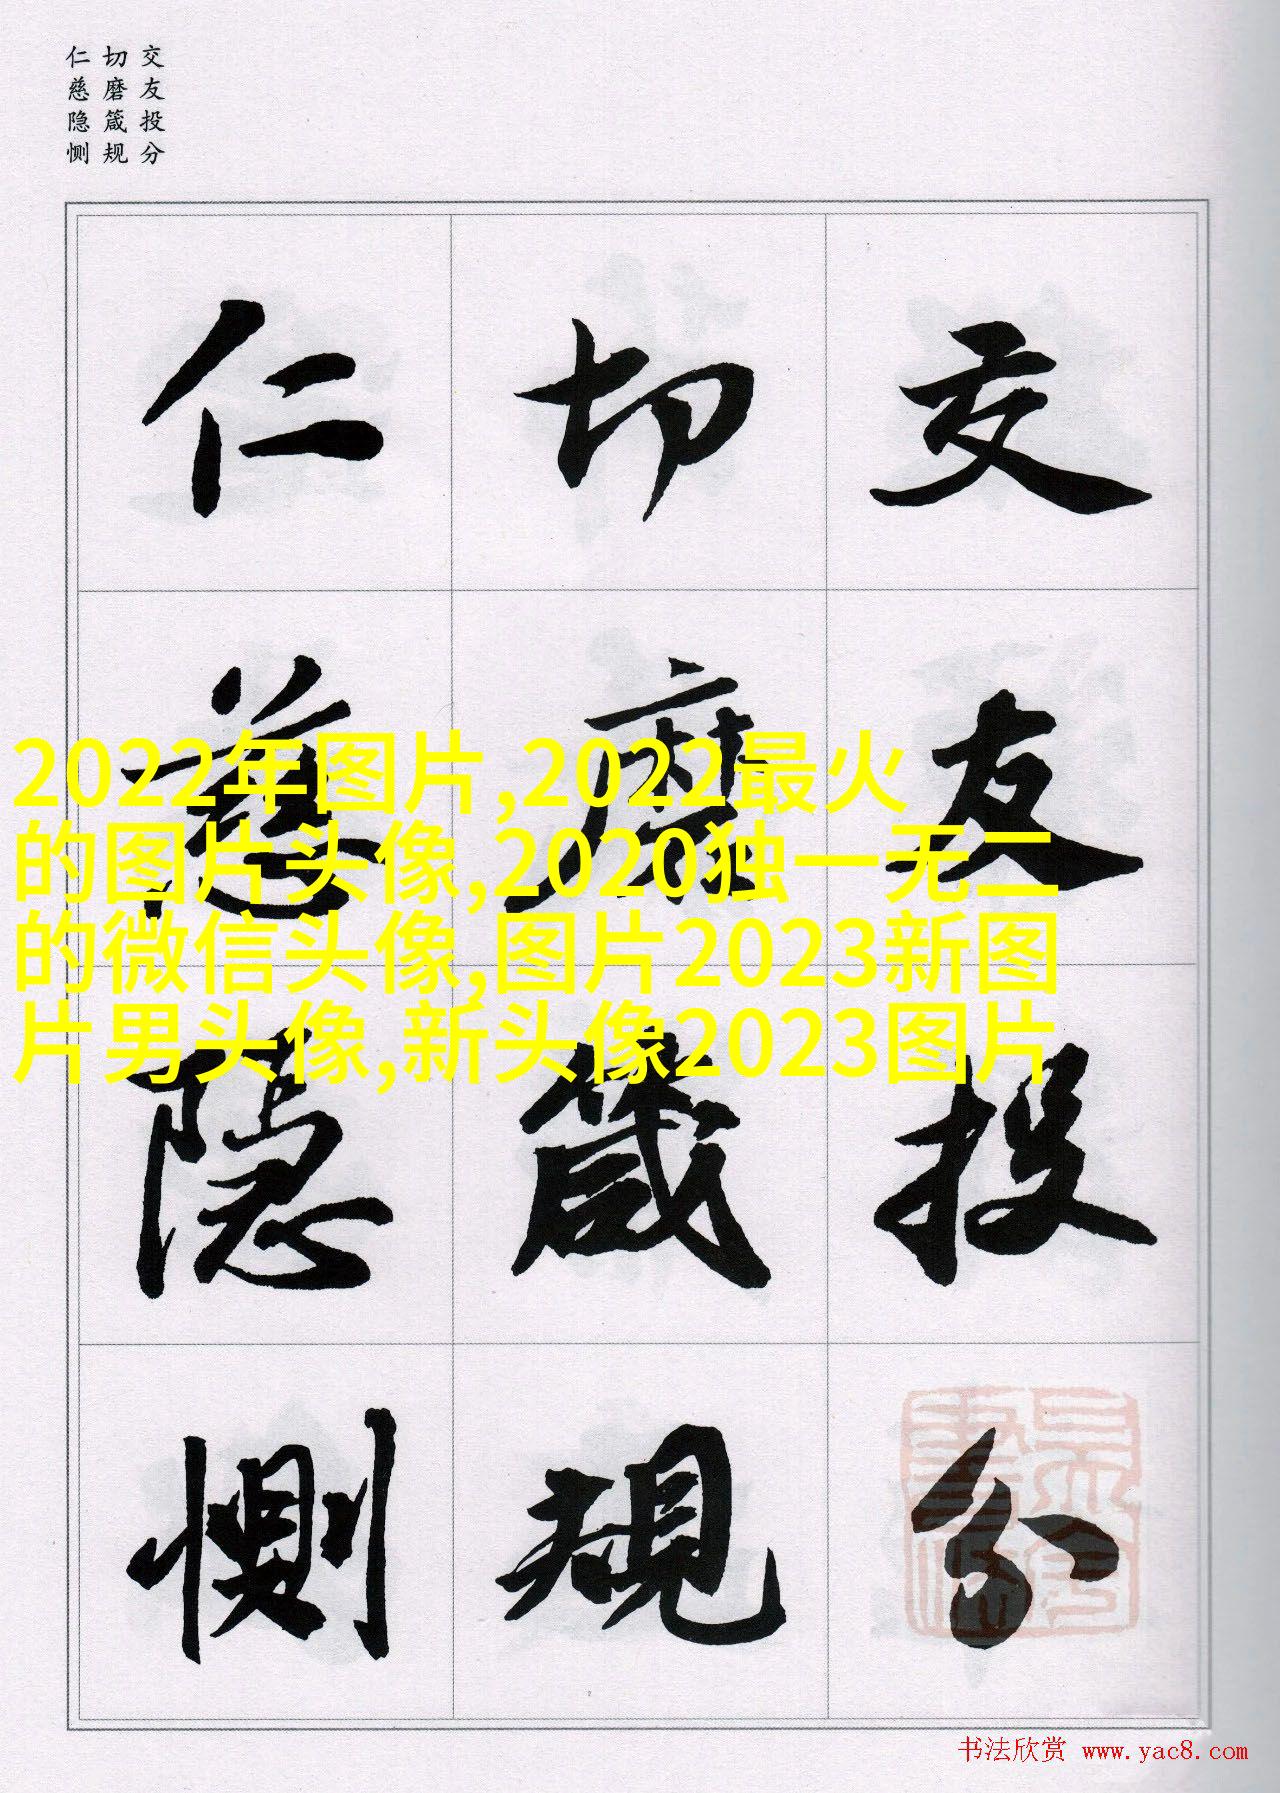 交友投分
切磨箴规
仁慈隐恻
交友投分
切磨箴規
仁慈隐恻
2022年图片,2022最火
的图片头像,2020独一无二
的微信头像,图片2023新图
片男头像,新头像2023图片
书法欣赏 www.yac8.com